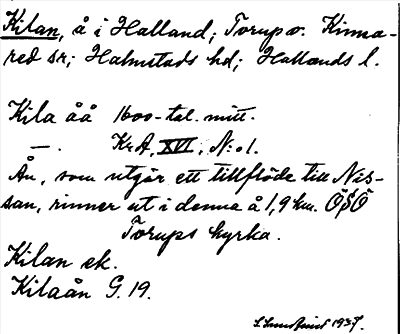 Kilan, å i Halland; Torup o. Kinna-
red sr; Halmstads hd; Hallands l.
Kila åå 1600-tal. mitt.
—. KrA, XVI, N:o 1.
Ån, som utgör ett tillflöde till Nis-
san, rinner ut i denna å 1,9 km. ÖSÖ
Torups kyrka.
Kilan ek.
Kilaån G. 19.
1937.